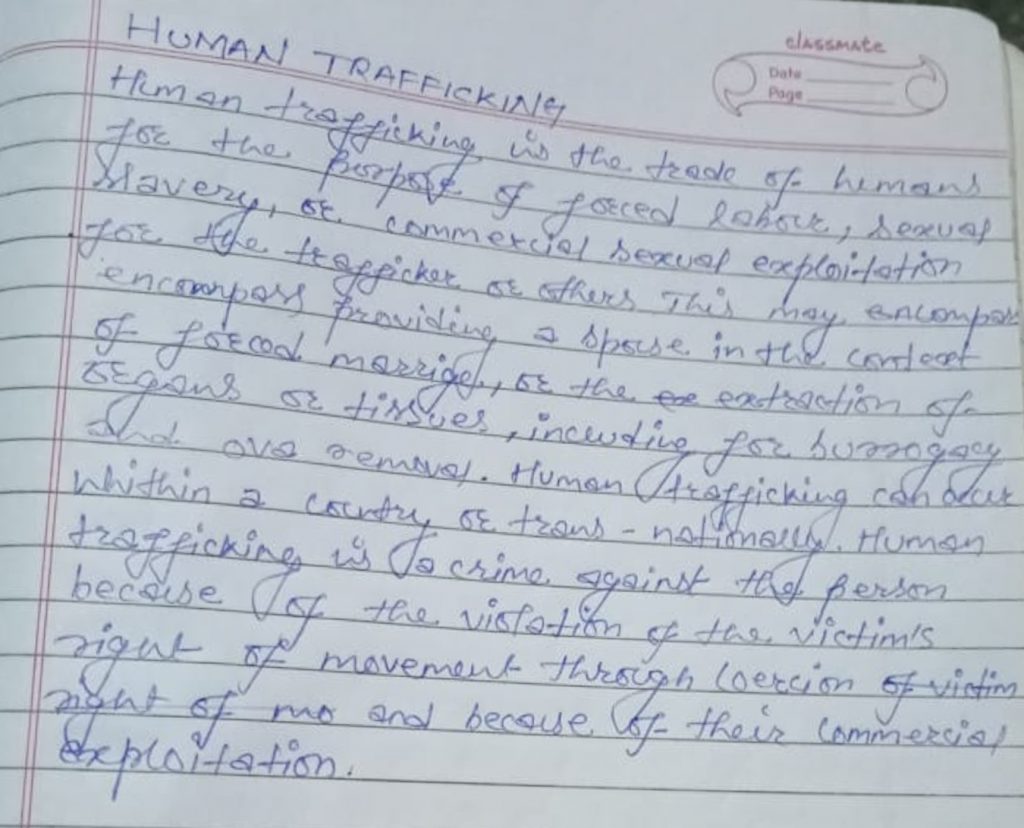 classmate
Date
Page
HUMAN TRAFFICKING
Human trafficking is the trade of humans
for the purpose of forced labour, sexual
slavery, or commercial sexual exploitation
for the trafficker or others This may encompass
encompass providing a spouse in the context
of forced marrige, or the ex extraction of
organs or tissues, including for surrogacy
and ova removal. Human trafficking can occur
whithin a country or trans-nationally. Human
trafficking is a crime against the person
because of the violation of the victim's
right of movement through coercion of victim
right of mo and because of their commercial
exploitation.